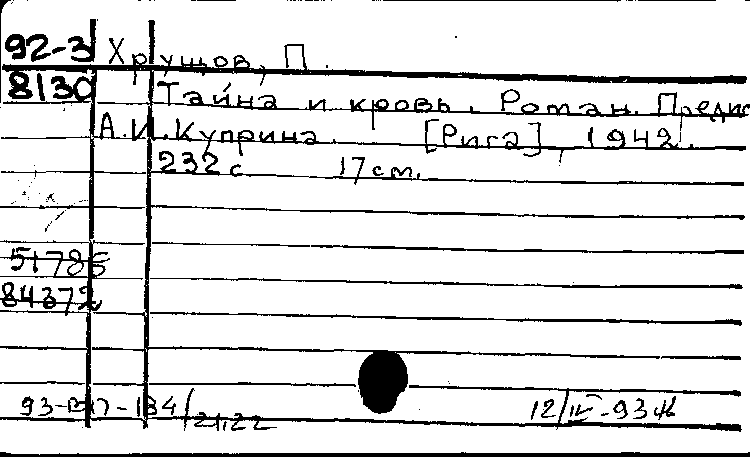 92-3 Хрущов, П.
8130 Тайна и кровь. Роман. Предис
А.И. Куприна. [Рига], 1942.
232 с 17 см.
51785
84372
93- -184/21,22 12/IV-93